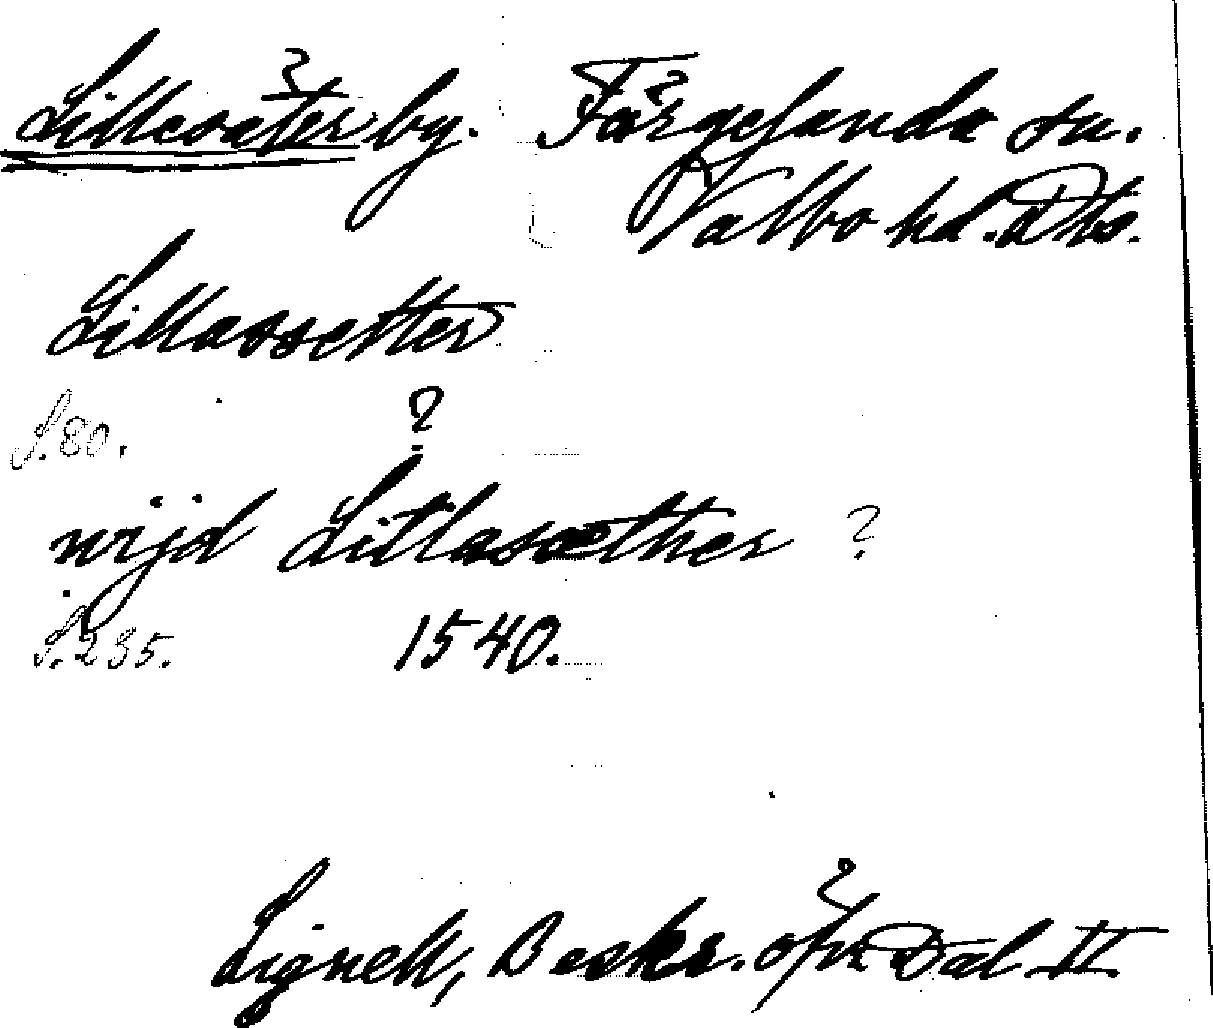 Lillesäter by. Färgelanda sn.
Valbo hd. Dls.
Lillassetter
S. 80. ?
wijd Litlasæther ?
S. 235. 1540.
Lignell, Beskr. öfv. Dal II.